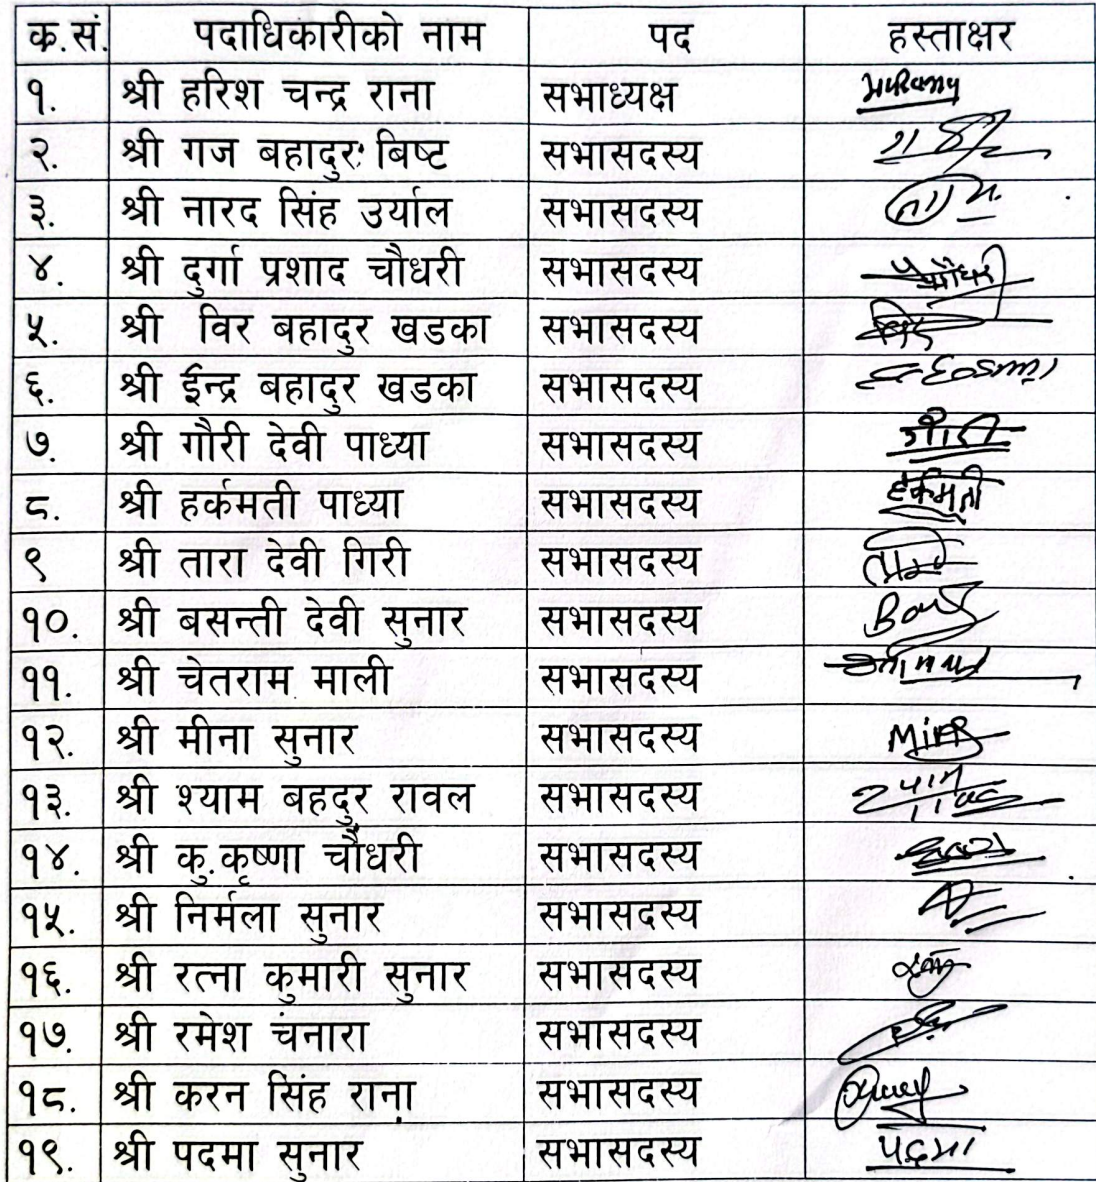 क.सं. पदाधिकारीको नाम पद हस्ताक्षर
१. श्री हरिश चन्द्र राना सभाध्यक्ष
२. श्री गज बहादुर बिष्ट सभासदस्य
३. श्री नारद सिंह उर्याल सभासदस्य
४. श्री दुर्गा प्रशाद चौधरी सभासदस्य चौधरी
५. श्री विर बहादुर खडका सभासदस्य
६. श्री ईन्द्र बहादुर खडका सभासदस्य
७. श्री गौरी देवी पाध्या सभासदस्य गौरी
८. श्री हर्कमती पाध्या सभासदस्य हर्कमती
९ श्री तारा देवी गिरी सभासदस्य
१०. श्री बसन्ती देवी सुनार सभासदस्य
११. श्री चेतराम माली सभासदस्य
१२. श्री मीना सुनार सभासदस्य
१३. श्री श्याम बहदुर रावल सभासदस्य
१४. श्री कु.कृष्णा चौधरी सभासदस्य
१५. श्री निर्मला सुनार सभासदस्य
१६. श्री रत्ना कुमारी सुनार सभासदस्य
१७. श्री रमेश चंनारा सभासदस्य
१८. श्री करन सिंह राना सभासदस्य
१९. श्री पदमा सुनार सभासदस्य पदमा